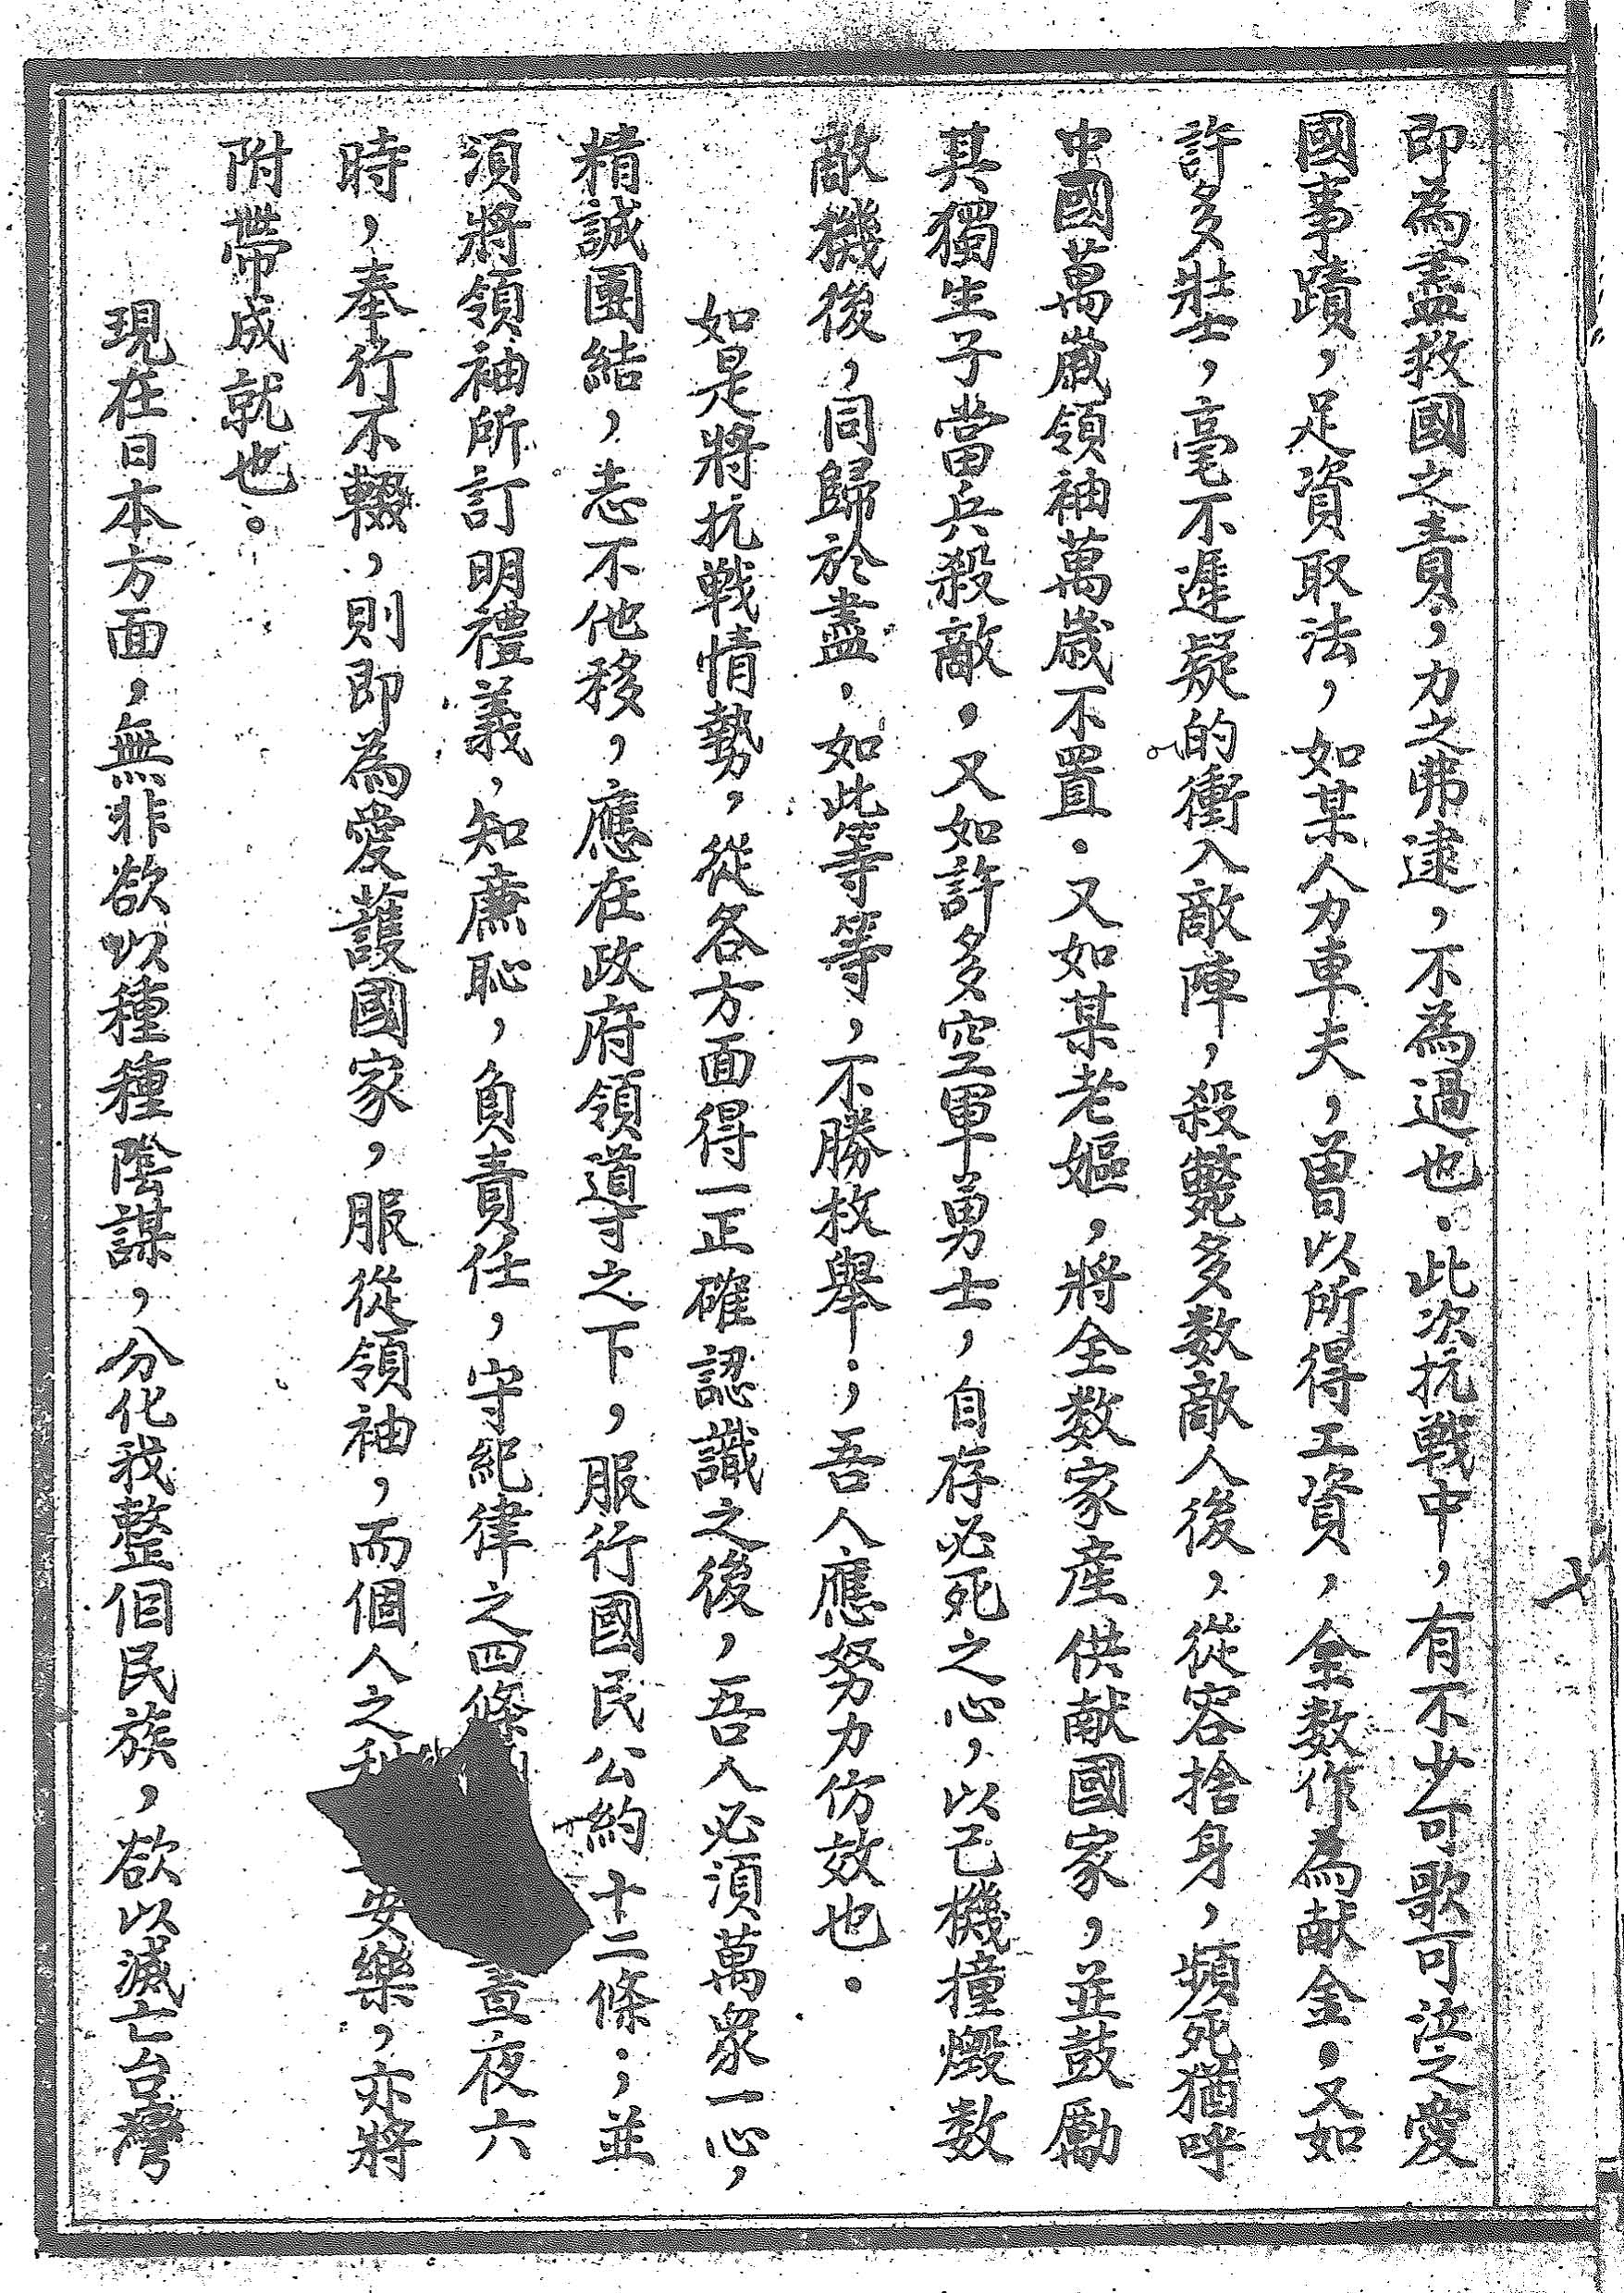 七
即為盡救國之責，力之弗逮，不為過也．此次抗戰中，有不少可歌可泣之愛
國事蹟，足資取法，如某人力車夫，曾以所得工資，全数作為献金．又如
許多壯士，毫不遲疑的衝入敵陣，殺斃多数敵人後，從容捨身，頻死猶呼
中國萬歲領袖萬歲不置．又如某老嫗，將全数家産供献國家，並鼓勵
其獨生子當兵殺敵．又如許多空軍勇士，自存必死之心，以己機撞燬数
敵機後，同歸於盡．如此等等，不勝枚舉；吾人應努力仿效也．
如是將抗戰情勢，從各方面得一正確認識之後，吾人必須萬眾一心，
精誠團結，志不他移，應在政府領導之下，服行國民公約十二條；並
須將領袖所訂明禮義，知廉恥，負責任，守紀律之四條晝夜六
時，奉行不輟，則即為愛護國家，服從領袖，而個人之安樂，亦將
附帶成就也。
現在日本方面，無非欲以種種陰謀，分化我整個民族，欲以滅亡台灣